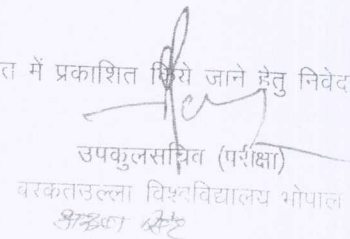 में प्रकाशित किये जाने हेतु निवेद
उपकुलसचिव (परीक्षा)
बरकतउल्ला विश्वविद्यालय भोपाल